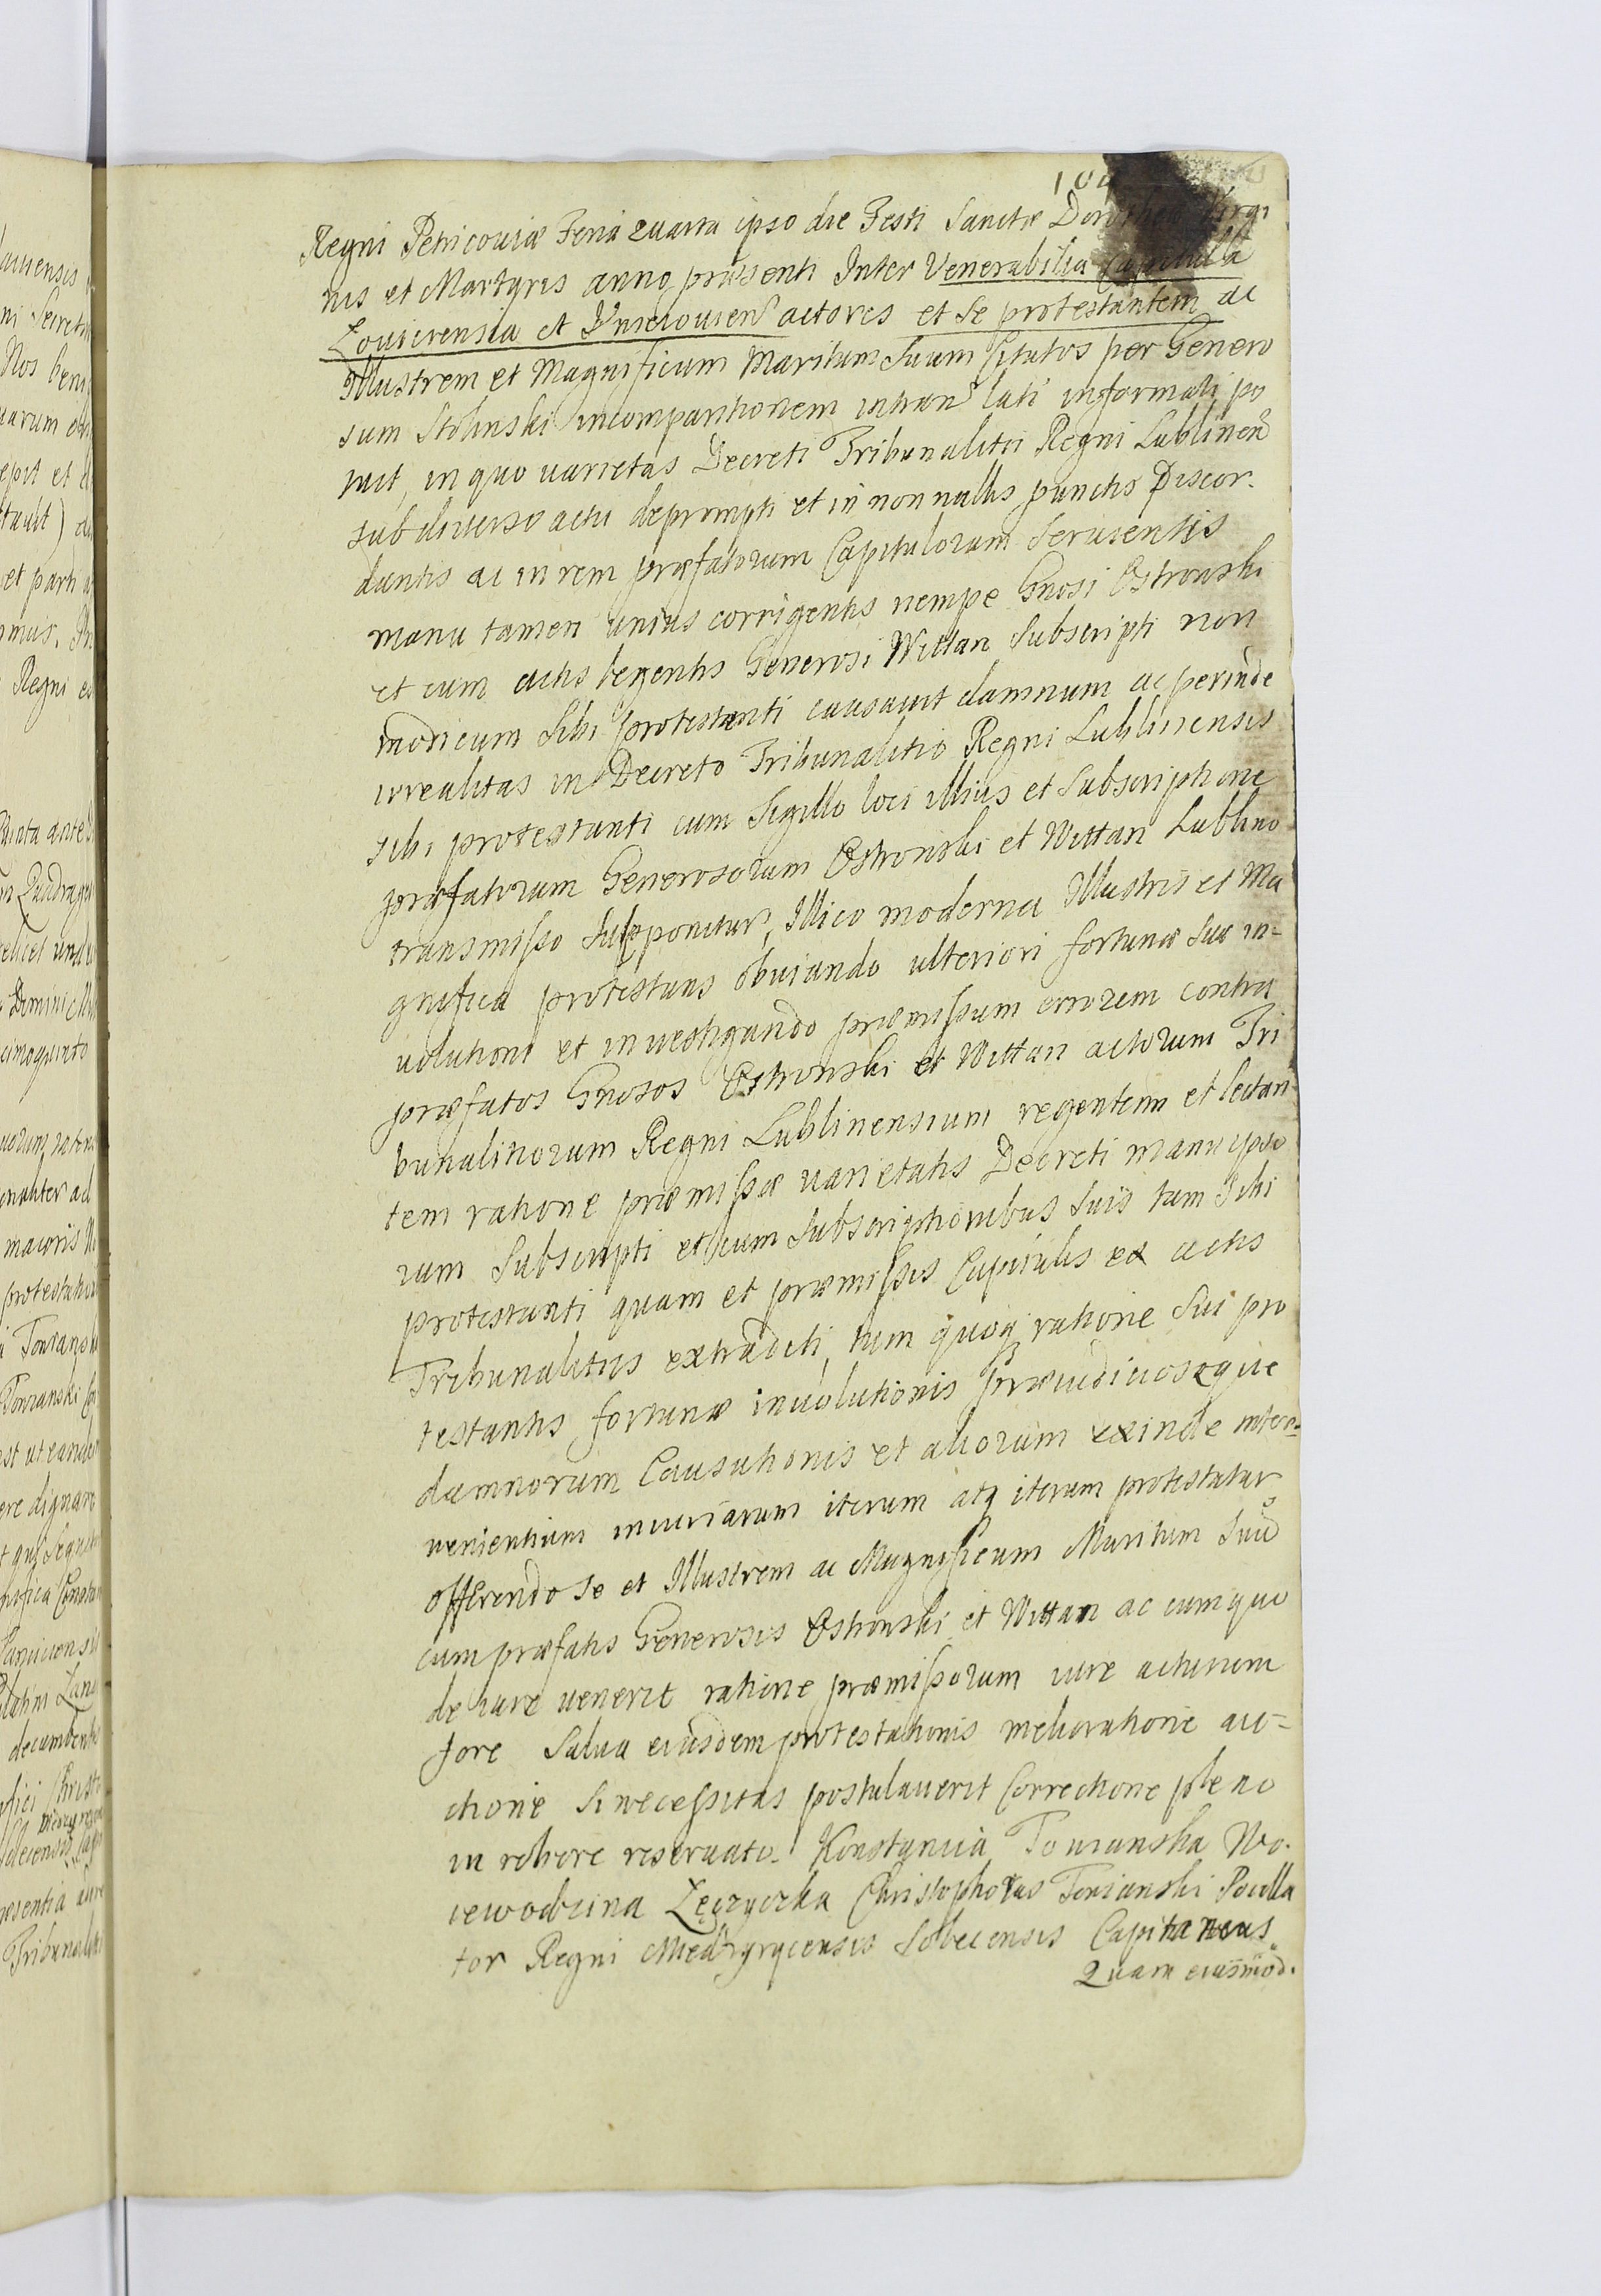 Regni Petricoviæ Feria quarta ipso die Festi Sanctæ Dorotheæ Virgi
nis et Martyris anno præsenti Inter Venerabilia Capitulla
Lovicensia et Unieiouien actores et se protestantem ac
Illustrem et Magnificum Maritum Suum Citatos per Genero
sum Stolinski incomparitionem lati informali po
nit, in quo varietas Decreti Tribunalitii Regni Lublinen
sub diverso actu deprompti et in nonnullis punctis Discor-
dantis ac in rem præfatorum Capitulorum Seruientis
manu tamen unius corrigentis nempe Gnosi Ostronski
et cum actis legentis Generosi Wittan Subscripti non
modicum Sibi protestanti causauit damnum ac perinde
irrealitas in Decreto Tribunalitio Regni Lublinensis
sibi protestanti cum Sigillo loci illius et Subscriptione
præfatorum Generosorum Ostronski et Wittan Lublino
transmisso Supponitur, Illico moderna Illustris et Ma
gnifica protestans obuiando ulteriori fortunæ Suæ in=
uolutioni et inuestigando præmissum errorem contra
præfatos Gnosos Ostronski et Wittan actorum Tri
bunalitiorum Regni Lublinensium regentem et lectan
tem ratione præmissæ varietatis Decreti manu ipso
rum Subscripti et cum Subscriptionibus Suis tam Sibi
protestanti quam et præmissis Capitulis ex actis
Tribunalitiis extraditi, tum quoq ratione Sui pro
testantis fortunæ inuolutionis præiudiciosæque
damnorum Causationis et aliorum exinde inter=
uenientium iniuriarum iterum atq iterum protestatur
offerendo Se et Illustrem ac Magnificum Maritum Suu
cum præfatis Generosis Ostronski et Wittan ac cum quo
de iure uenerit ratione præmissorum iure acturum
fore Salua eiusdem protestationis melioratione au=
ctione Si necessitas postulauerit Correctione pleno
in robore reseruato. Konstancia Towianska Wo-
iewodzina Łęczycka Christophorus Towianski Pocilla
tor Regni Miedzyrycensis Sobecensis Capitaneus.
Quam eiusmod.